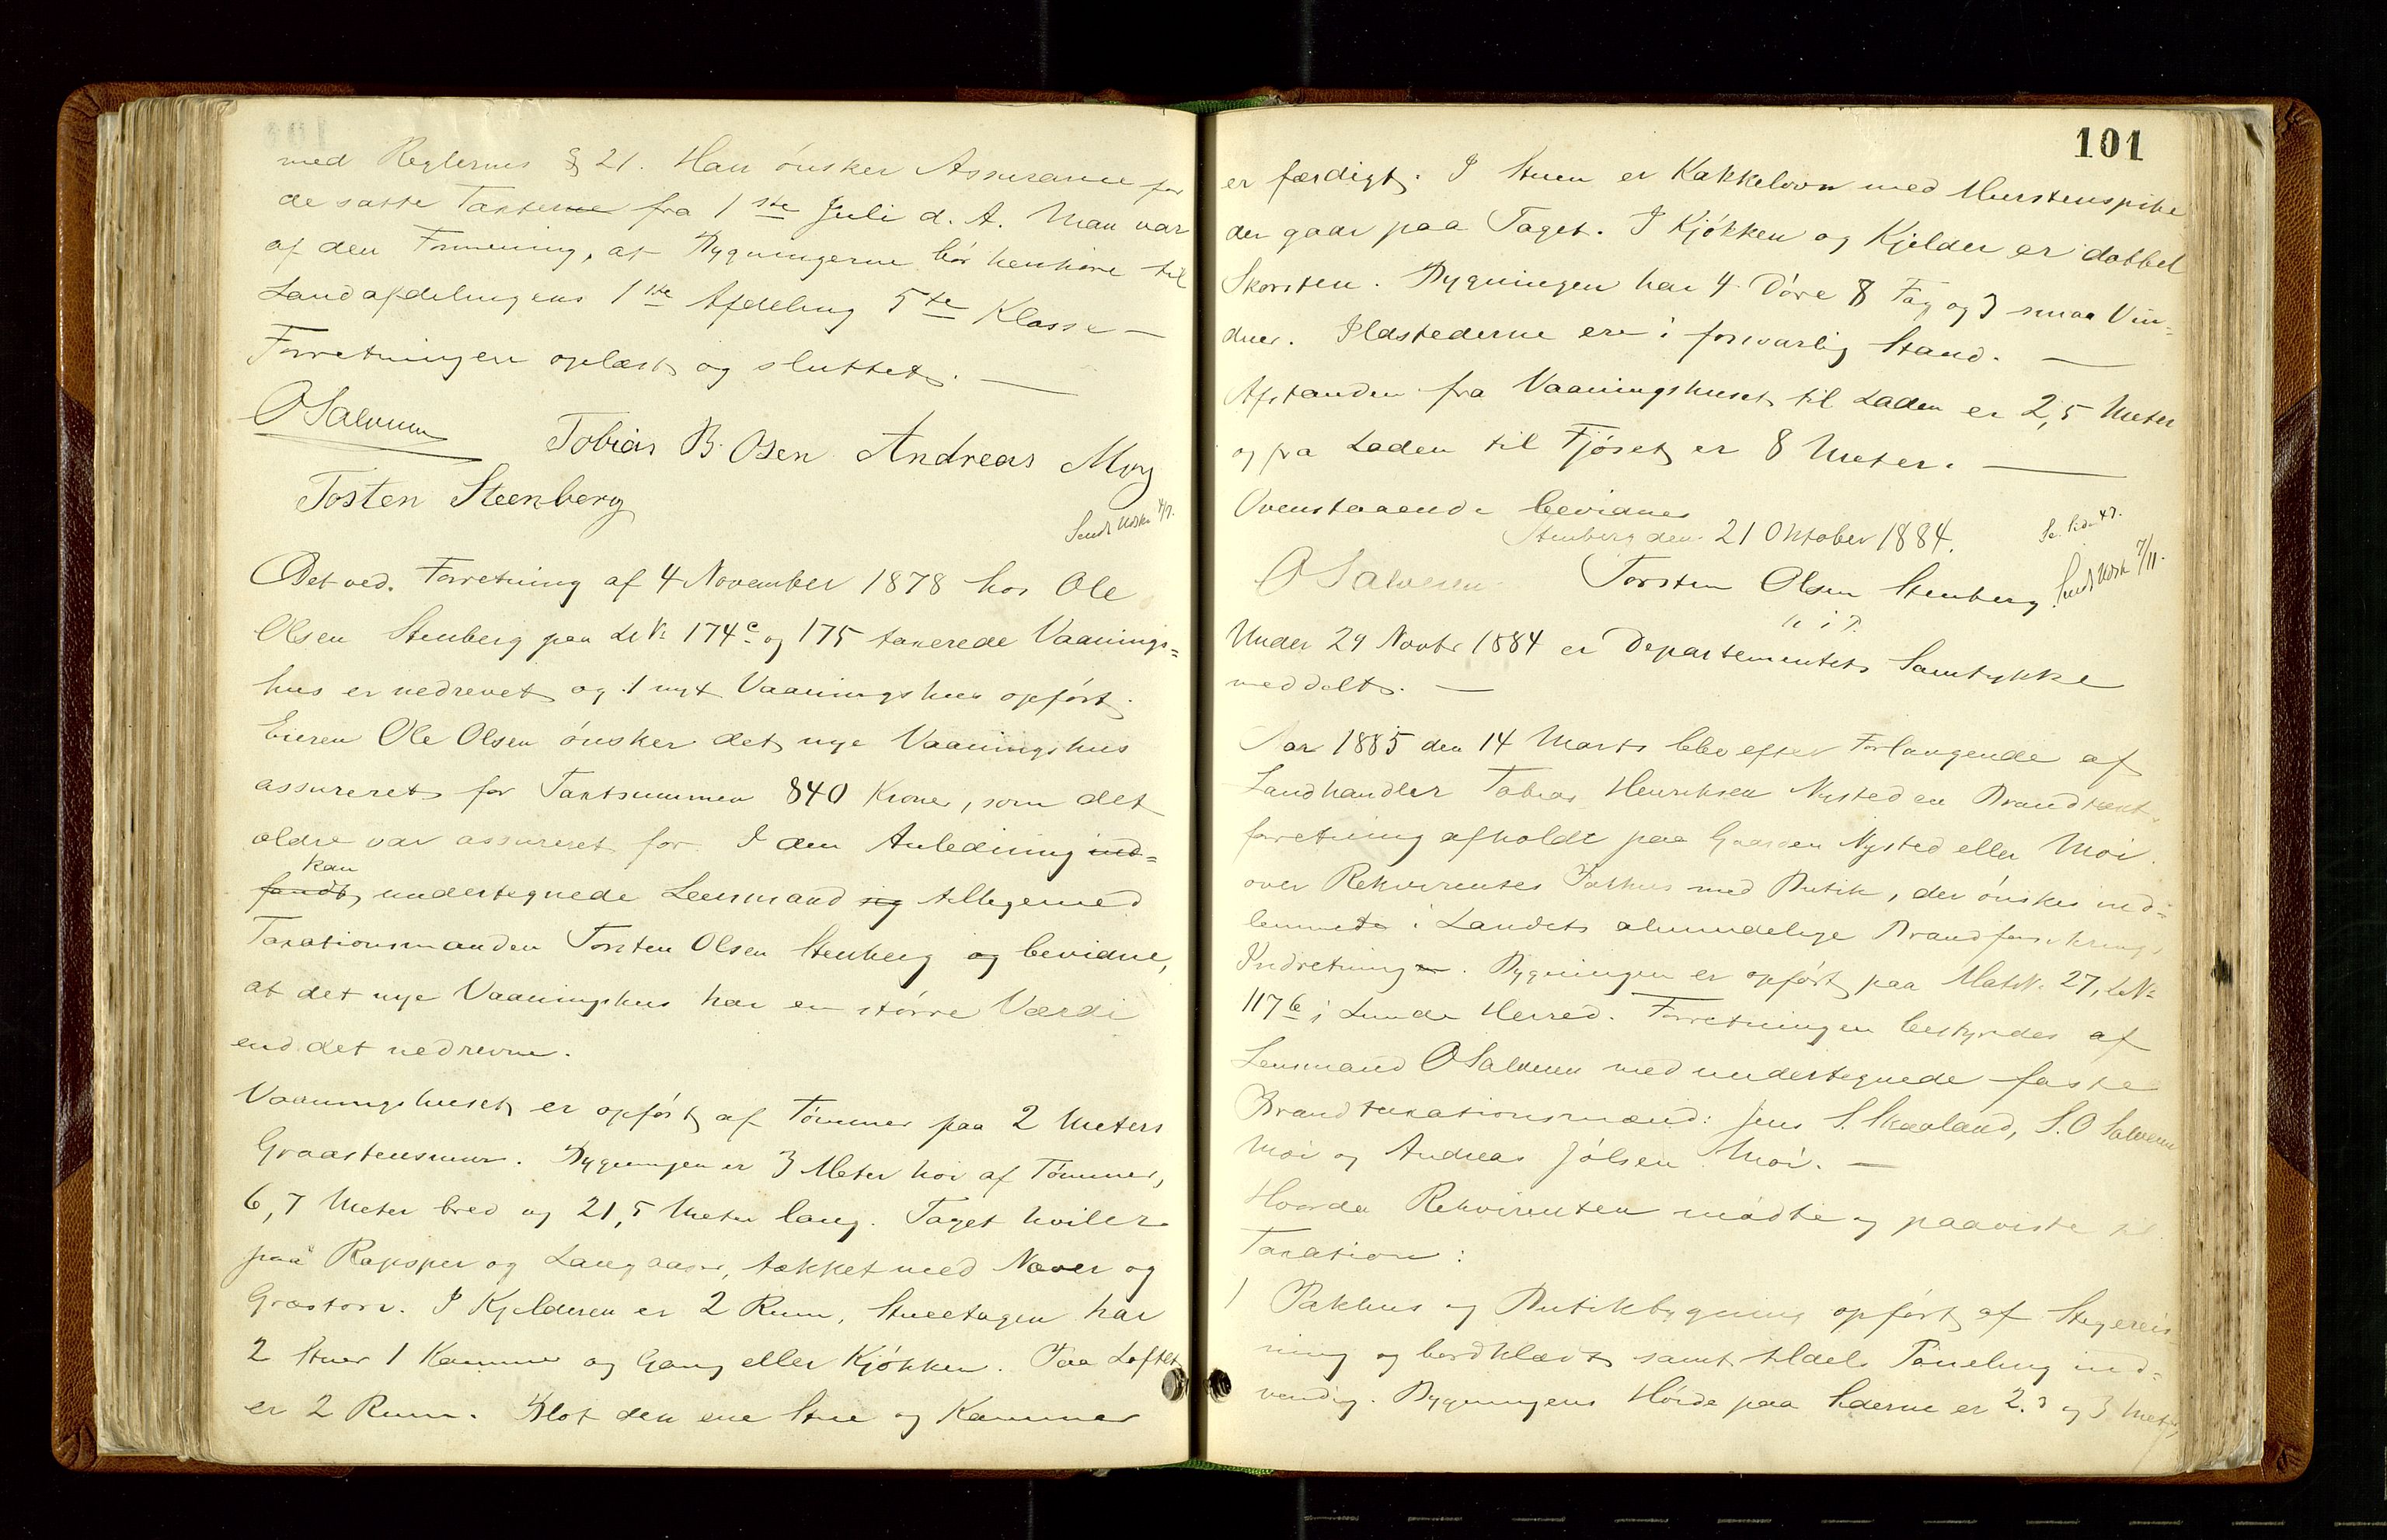 med Reglernes § 21. Han ønsker Assurance for
de satte Taxter fra 1ste Juli d. A. Man var
af den Formening, at Bygningerne bør henhøre til
Landafdelingens 1ste Afdeling 5te Klasse —
Forretningen oplæst og sluttet. —
O Salvesen Tobias B. Osen Andreas Moy
Tosten Steenberg
Sendt Udskr 4/7.
Det ved Forretning af 4 November 1878 hos Ole
Olsen Stenberg paa LNr 174c og 175 taxerede Vaanings=
hus er nedrevet og 1 nyt Vaaningshus opført.
Eieren Ole Olsen ønsker det nye Vaaningshus
assureret for Taxtsummen 840 Kroner, som det
ældre var assureret for. I den Anledning ind=
kan
fandt, undertegnede Lensmand sig tilligemed
Taxationsmanden Torsten Olsen Stenberg og bevidne,
at det nye Vaaningshus har en større Værdi
end det nedrevne.
Vaaningshuset er opført af Tømmer paa 2 Meters
Graastensmur. Bygningen er 3 Meter høi af Tømmer,
6,7 Meter bred og 21,5 Meter lang. Taget hviler
paa Rapsper og Langaaser, tækket med Næver og
Græstorv. I Kjelderen er 2 Rum, Stueetagen har
2 Stuer 1 Kammer og Gang eller Kjøkken. Paa Loftet
er 2 Rum. Blot den ene Stue og Kammer
101
er færdigt. I Stuen er Kakkelovn med Murstenspibe
der gaar paa Taget. I Kjøkken og Kjelder er dobbel
Skorsten. Bygningen har 4 Døre 8 Fag og 3 smaa Vin=
duer. Ildstederne ere i forsvarlig Stand. —
Afstanden fra Vaaningshuset til Laden er 2,5 Meter
og fra Laden til Fjøset er 8 Meter. —
Ovenstaaende bevidnes
Stenberg den 21 Oktober 1884.
Se Side 47.
O Salvesen Torsten Olsen Stenberg
Sendt Udskr 7/11.
Under 29 Novbr 1884 er Departementets Samtykke
meddelt. —
Aar 1885 den 14 Marts blev efter Forlangende af
Landhandler Tobias Henriksen Nysted en Brandtaxt-
forretning afholdt paa Gaarden Nysted eller Moi.
over Rekvirentes Pakhus med Butik, der ønskes ind=
lemmet i Landets almindelige Brandforsikrings
Indretning. Bygningen er opført paa MatrN. 27, LNr
117b i Lunde Herred. Forretningen bestyredes af
Lensmand O Salvesen med undertegnede faste
Brandtaxationsmænd: Jens S. Skaaland, S. O Salvesen
Moi og Andreas Jølsen Moi. —
Hvorda Rekvirenten mødte og paaviste til
Taxation:
1 Pakhus og Butikbygning opført af Stegereis
ning og bordklædt samt tildels Paneling ind=
vendig. Bygningens Høide paa Siderne er 2.3 og 3 Meter,